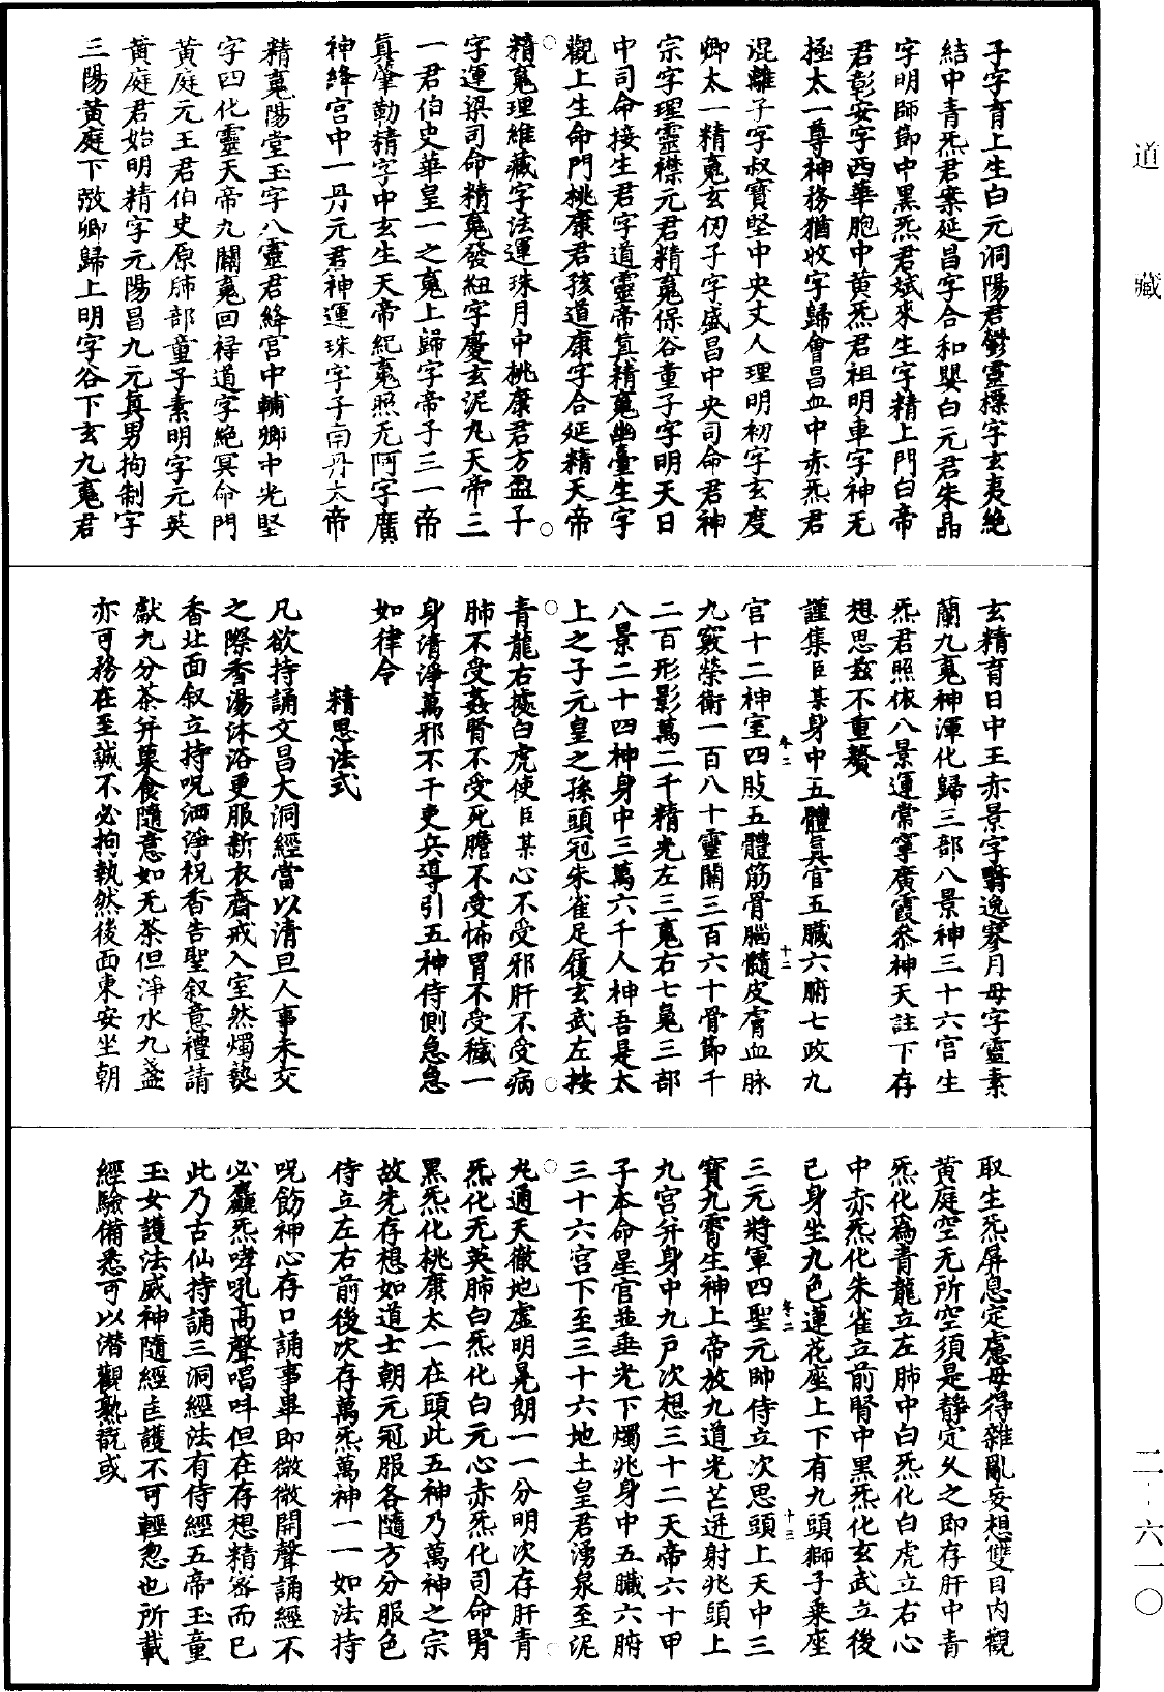 道藏
子字育上生白元洞陽君鬱靈標字玄夷絕
結中青炁君案延昌字合和嬰白元君朱晶
字明師節中黑炁君斌來生字精上門白帝
君彰安字西華胞中黃炁君祖明車字神无
極太一尊神務猶收字歸會昌血中赤炁君
混離子字叔寶堅中央丈人理明初字玄度
卿太一精䰟玄仞子字盛昌中央司命君神
宗字理靈襟元君精䰟保谷童子字明天日
中司命接生君字道靈帝真精䰟幽臺生字
觀上生命門桃康君孩道康字合延精天帝
精䰟理維藏字法運珠月中桃康君方盈子
字運梁司命精䰟發紐字慶玄泥九天帝三
一君伯史華皇一之䰟上歸字帝子三一帝
真肇勒精字中玄生天帝紀䰟照无阿字廣
神絳宮中一丹元君神運珠字子南丹太帝
精䰟陽堂玉字八靈君絳宮中輔卿中光堅
字四化靈天帝九關䰟回祿道字絕冥命門
黃庭元王君伯史原肺部童子素明字元英
黃庭君始明精字元陽昌九元真男拘制字
三陽黃庭下弢卿歸上明字谷下玄九䰟君
玄精育日中王赤景字翳逸寥月母字靈素
蘭九䰟神渾化歸三部八景神三十六宮生
炁君照依八景運常寧廣霞叅神天註下存
想思玆不重贅
謹集臣某身中五體真官五臟六腑七政九
官十二神室四肢五體筋骨腦髓皮膚血脉
九竅榮衛一百八十靈關三百六十骨節千
二百形影萬二千精光左三䰟右七䰟三部
八景二十四神身中三萬六千人神吾是太
上之子元皇之孫頭冠朱雀足履玄武左按
青龍右掖白虎使臣某心不受邪肝不受病
肺不受姦腎不受死膽不受怖胃不受穢一
身清淨萬邪不干吏兵導引五神侍側急急
如律令
精思法式
凡欲持誦文昌大洞經當以清旦人事未交
之際香湯沐浴更服新衣齋戒入室然燭爇
香北面叙立持呪洒淨祝香告聖叙意禮請
獻九分茶并菓食隨意如无茶但淨水九盞
亦可務在至誠不必拘執然後面東安坐朝
取生炁屏息定慮毋得雜亂妄想雙目內觀
黃庭空无所空須是靜定久之即存肝中青
炁化為青龍立左肺中白炁化白虎立右心
中赤炁化朱雀立前腎中黑炁化玄武立後
己身坐九色蓮花座上下有九頭獅子乘座
三元將軍四聖元帥侍立次思頭上天中三
寶九霄生神上帝放九道光芒迸射兆頭上
九宮并身中九戶次想三十二天帝六十甲
子本命星官並垂光下燭兆身中五臟六腑
三十六宮下至三十六地土皇君湧泉至泥
丸通天徹地虛明晃朗一一分明次存肝青
炁化无英肺白炁化白元心赤炁化司命腎
黑炁化桃康太一在頭此五神乃萬神之宗
故先存想如道士朝元冠服各隨方分服色
侍立左右前後次存萬炁萬神一一如法持
呪飭神心存口誦事畢即微微開聲誦經不
必麤炁哮吼高聲唱呌但在存想精宻而已
此乃古仙持誦三洞經法有侍經五帝玉童
玉女護法威神隨經匡護不可輕忽也所載
經驗備悉可以潛觀熟翫或
卷二
十二
卷二
十三
二-六一〇